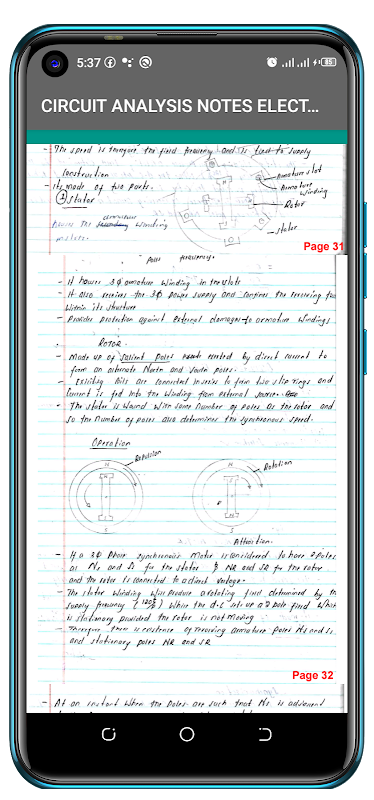 5:37
85
CIRCUIT ANALYSIS NOTES ELECT...
- The speed is therefore the field frequency and is fixed to supply
Construction
- Its made of two parts.
① Stator
armature
Houses the winding
Armature slot
Armature winding
Rotor
Stator
Page 31
frequency.
- It houses 3Ø armature winding in the slots
- It also receives the 3Ø power supply and confines the revolving flux
within its structure
- Provides protection against external damages to armature windings
ROTOR.
- Made up of salient poles excited by direct current to
form an alternate North and South poles.
- Exciting coils are connected in series to form two slip rings and
Current is fed into the winding from external source.
- The stator is wound with same number of poles as the rotor and
so the number of poles also determines the synchronous speed.
Operation
Repulsion
N
N
S
S
Rotation
N
S
S
Attraction.
- If a 3Ø Phase synchronous Motor is considered to have 2 poles
as Ns and Ss for the stator & NR and SR for the rotor
and the rotor is connected to a direct voltage.
- The stator winding will produce a rotating field determined by the
supply frequency (120f/P) while the d.c sets up a 2 pole field which
is stationary provided the rotor is not moving
- Therefore there is existence of revolving armature poles Ns and Ss
and stationary poles NR and SR
Page 32
- At an instant when the poles are such that Ns is adjacent